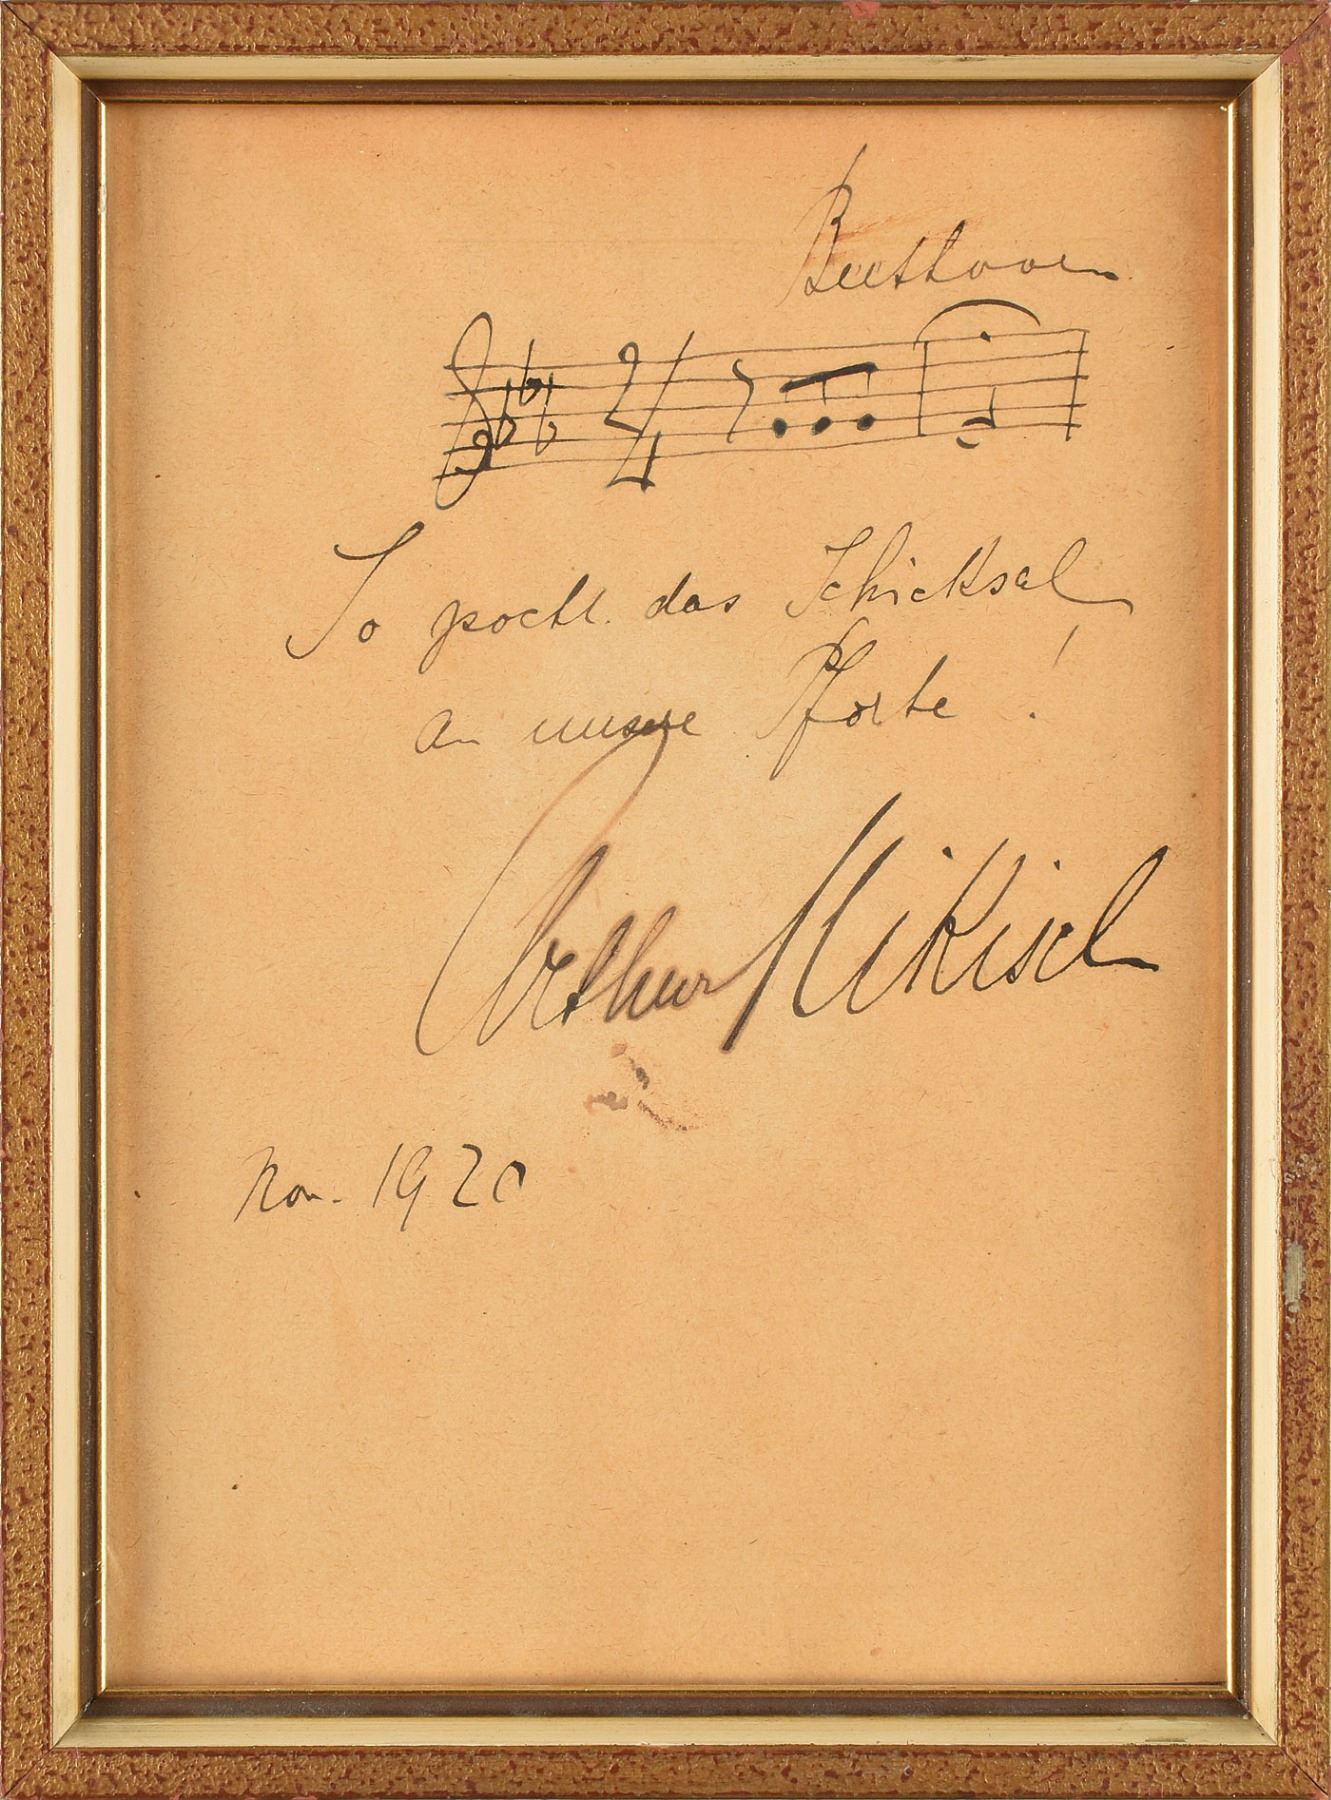 Beethoven
2/4
So pocht das Schicksal
an unsere Pforte !
Arthur Nikisch
Nov. 1920